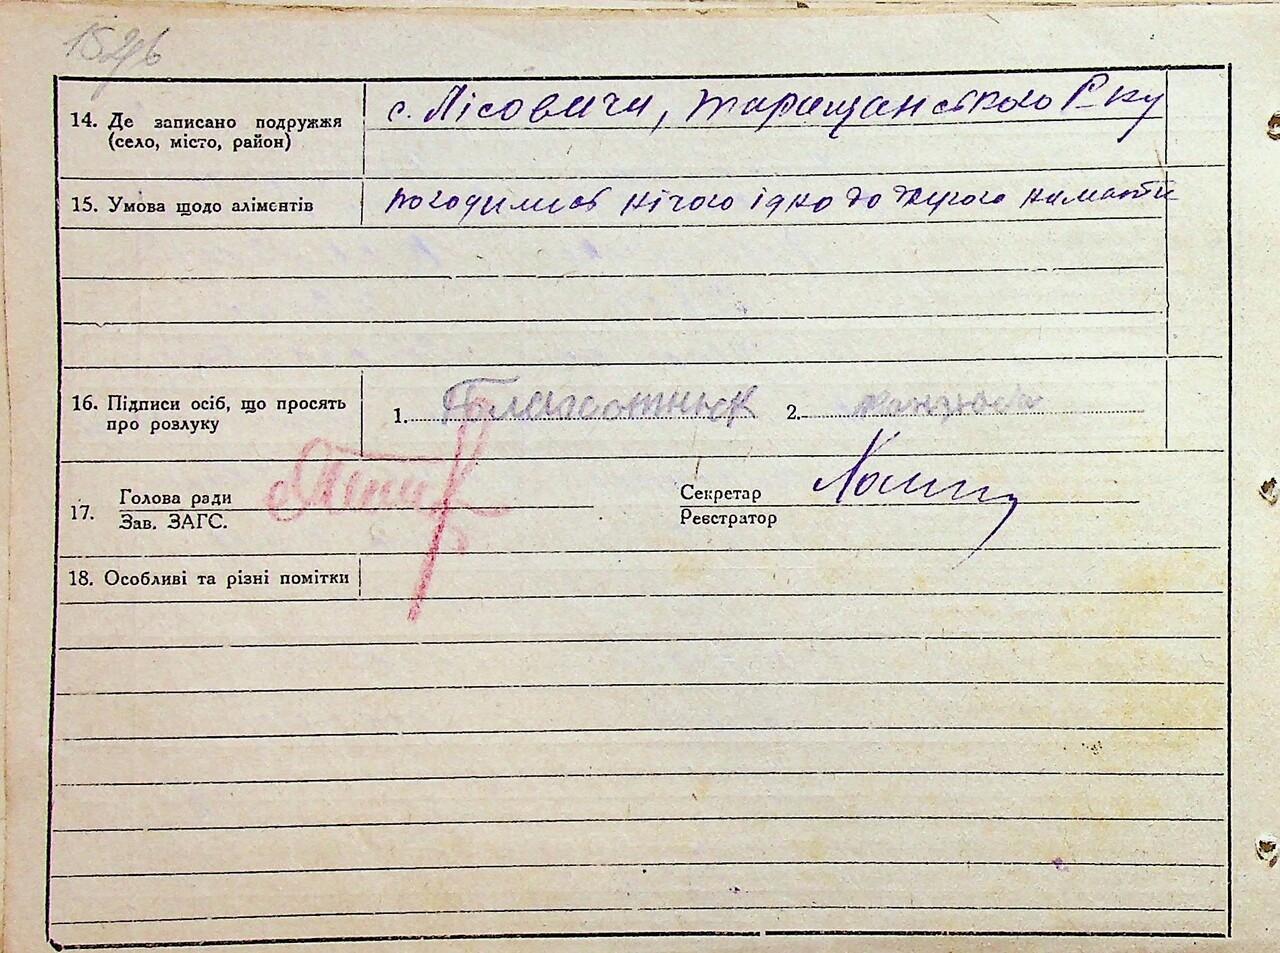 14. Де записано подружжя
(село, місто, район)
с. Лісовичи, Таращанського Р-ку
15. Умова щодо аліментів
погодились нічого ідно до другого
16. Підписи осіб, що просять
про розлуку
1.
2.
17.
Голова ради
Зав. ЗАГС.
Секретар
Реєстратор
18. Особливі та різні помітки